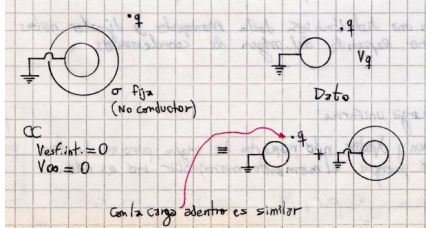 •q
•q
Vq
σ fija
(No conductor)
Dato
CC
Vesf.int. = 0
V∞ = 0
≡
•q
+
Con la carga adentro es similar